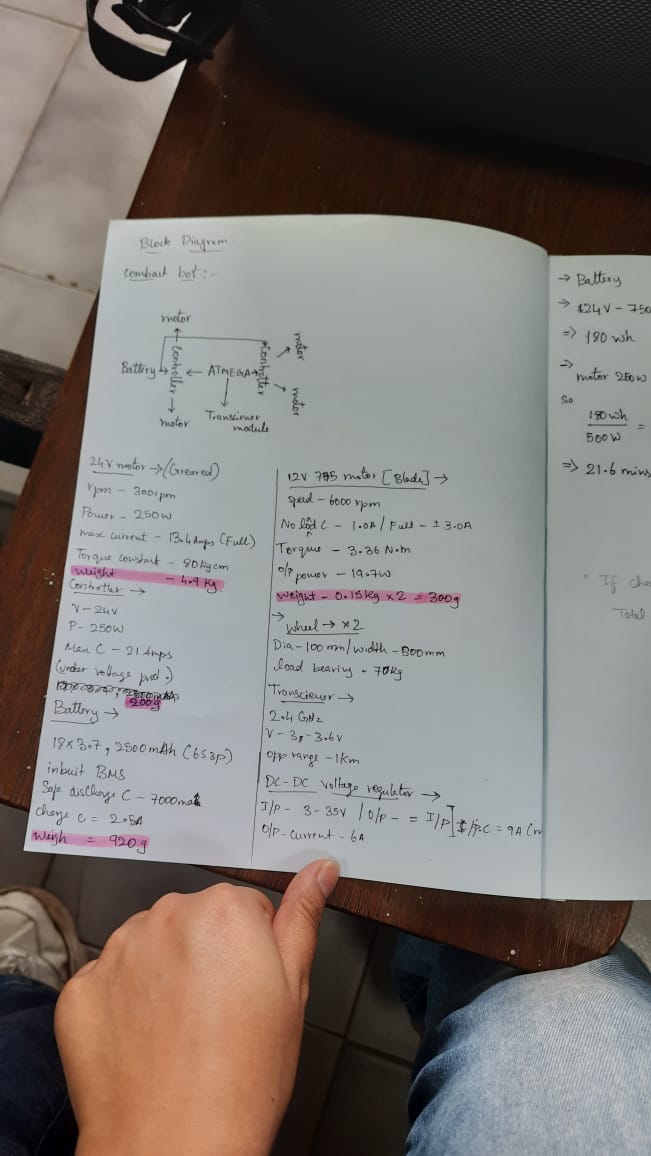 Block Diagram
Combact bot :-
motor
Controller
Battery
ATMEGA
Controller
motor
motor
motor
Transciever
module
24V motor → (Greared)
rpm - 300rpm
Power - 250W
max current - 13.4 Amps (Full)
Torque constant - 80 kgcm
weight - 4.9 kg
Controller →
V - 24V
P - 250W
Max C - 21 Amps
(under voltage prot.)
200g
Battery →
18 x 3.7, 2500 mAh (6S3p)
inbuit BMS
Safe discharge C - 7000mA
charge C = 2.5A
Weigh = 920g
12V 775 motor [Blade] →
speed - 6000 rpm
No load C - 1.0A / Full - ± 3.0A
Torque - 3.36 N.m
O/p power - 19.7W
weight - 0.15kg x 2 = 300g
→
Wheel → x2
Dia - 100 mm / width - 500mm
load bearing - 70kg
Transciever →
2.4 GHz
V - 3 - 3.6V
opp range - 1km
DC-DC Voltage regulator →
I/p - 3-35V / O/p - = I/p] I/p C = 9A (m
O/p - Current - 6A
→ Battery
→ 24V - 750
=> 180 wh
→
motor 250W
So
180 wh
500 W
=
=> 21.6 mins
" If cha
Total